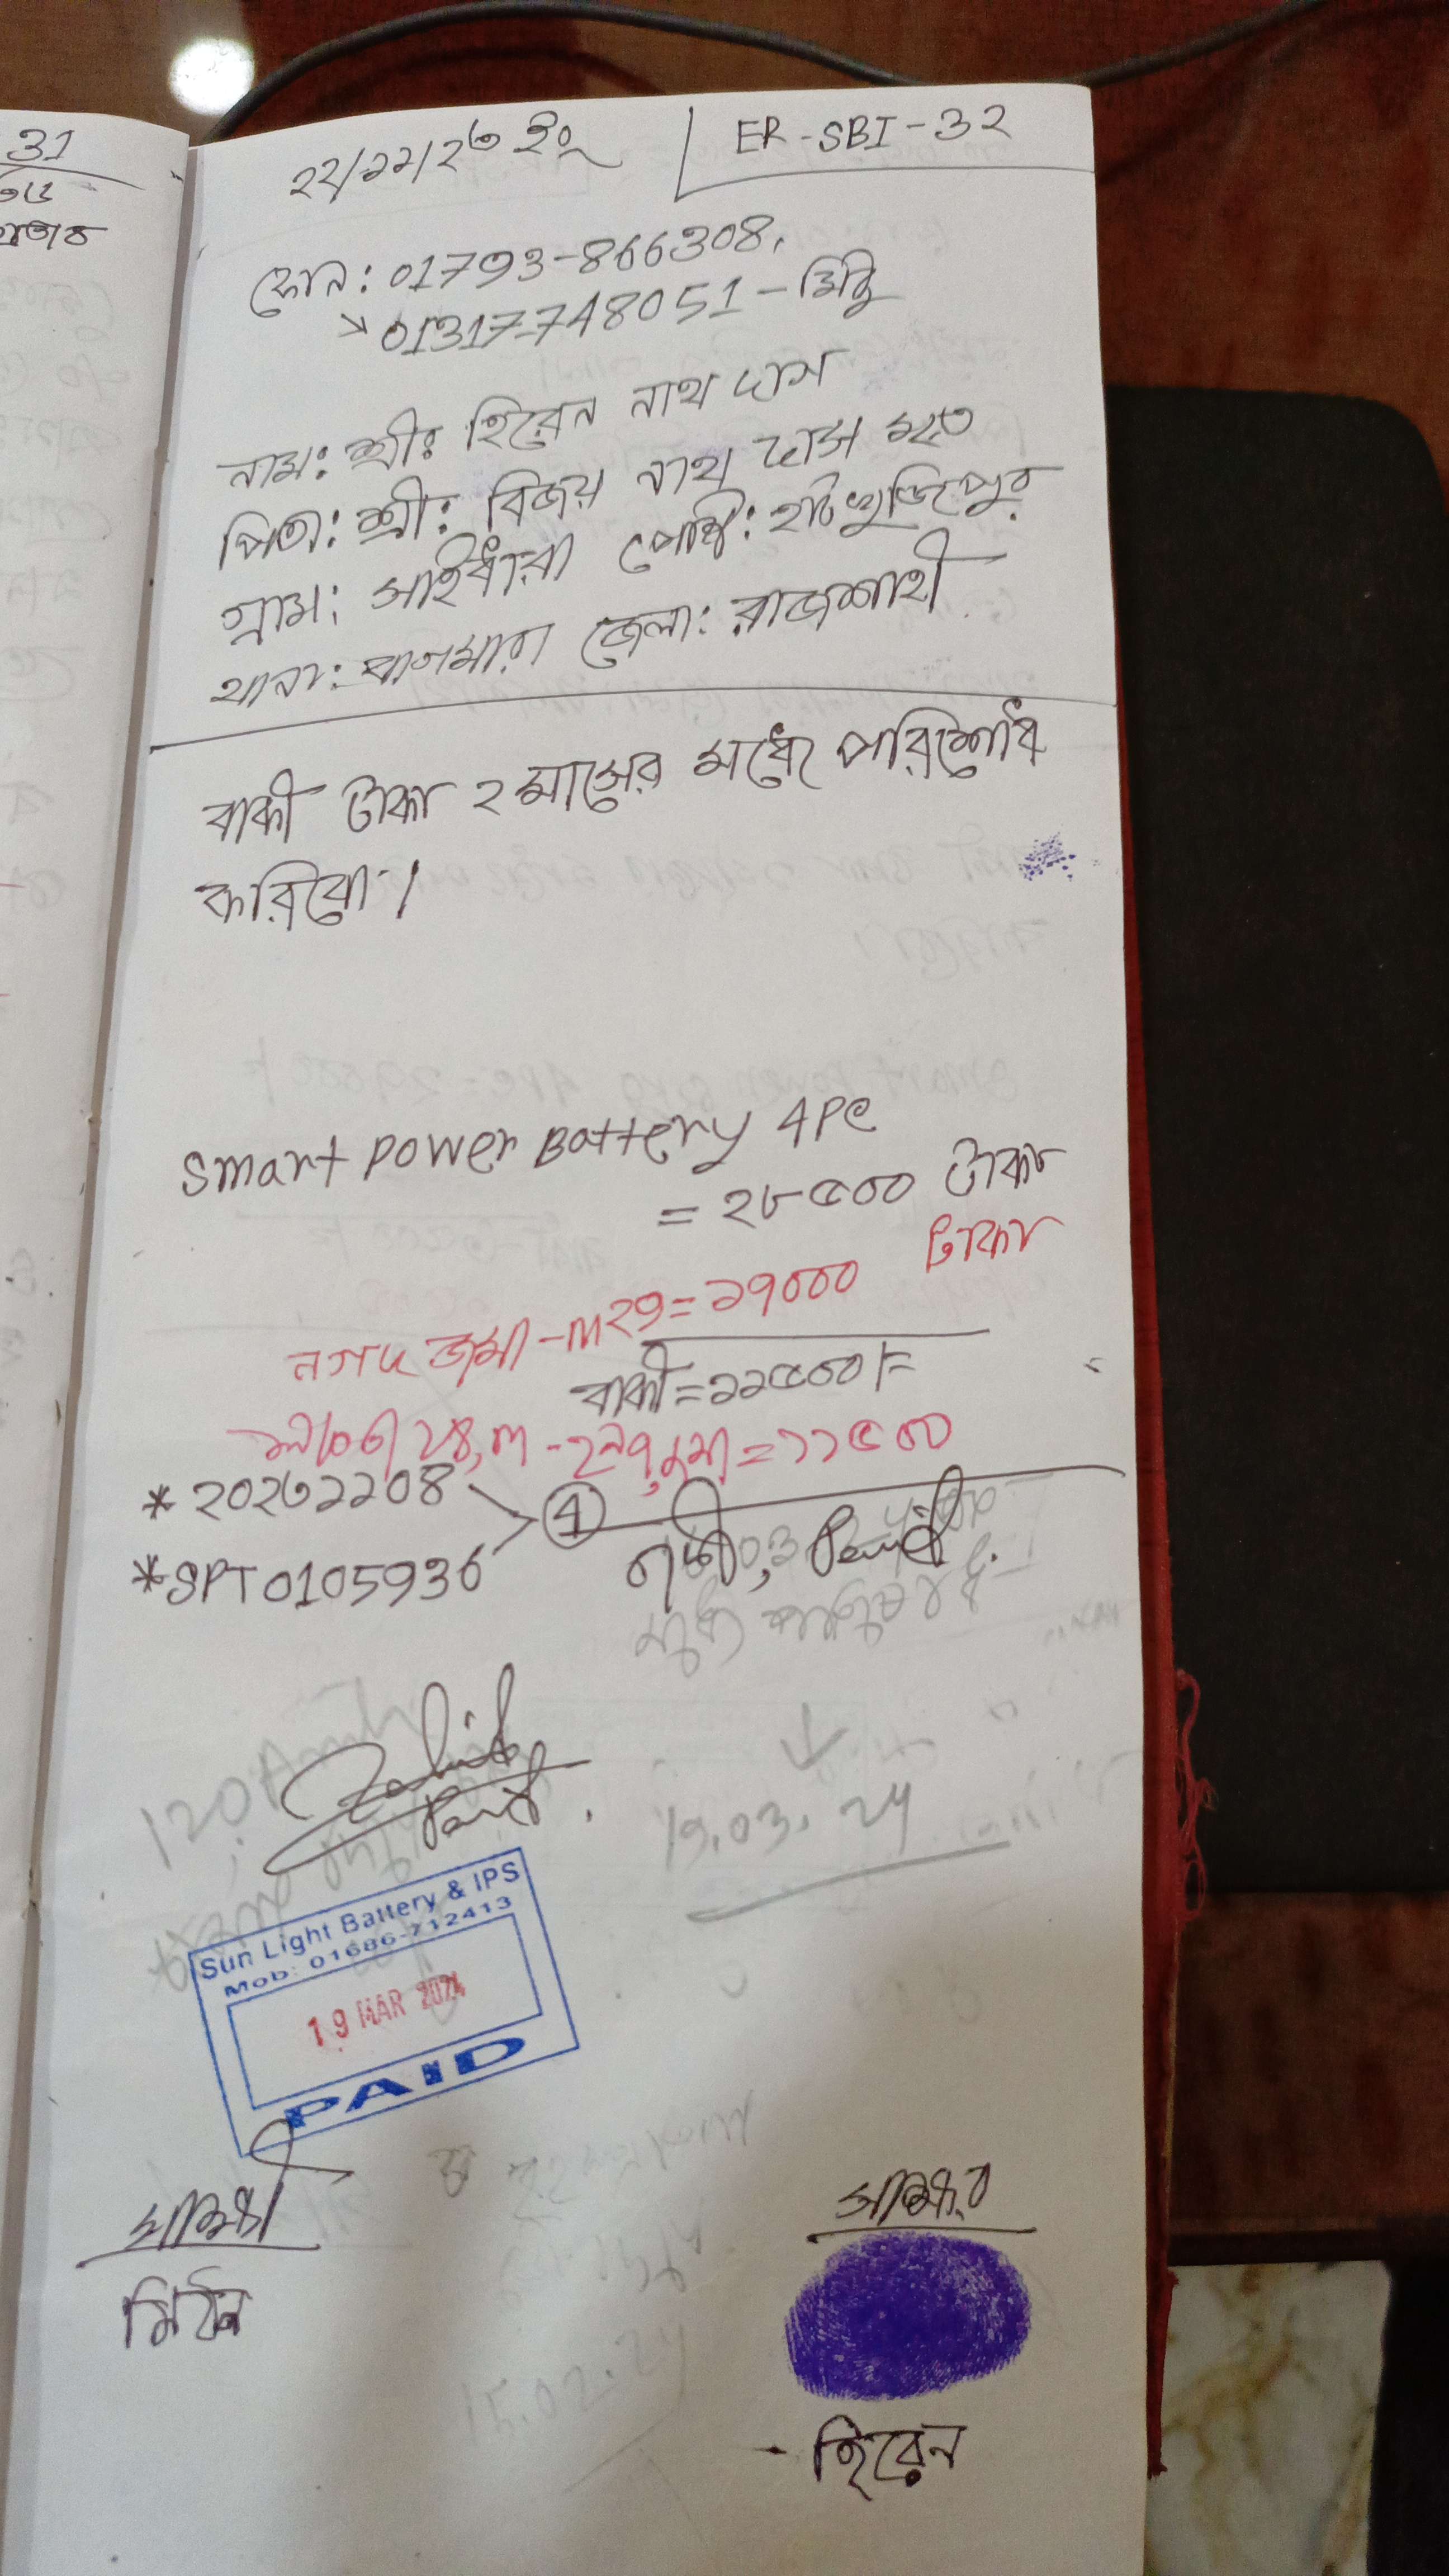 31
২২/১১/২৩ ইং
ER-SBI-32
ফোন: 01793-866308,
→ 01317-748051 - মিঠু
নাম: শ্রীঃ হিরেন নাথ দাস
পিতা: শ্রী: বিজয় নাথ দাস মৃত
গ্রাম: সাইধারা পোষ্ট: হাটখুজিপুর
থানা: বাগমারা জেলা: রাজশাহী
বাকী টাকা ২ মাসের মধ্যে পরিশোধ
করিবো।
Smart Power Battery 4Pc
= ২৮৫০০ টাকা
নগদ জমা -m২৩= ১৭০০০ টাকা
বাকী = ১১৫০০/=
= ১১৫০০
*20232208
4
*SPT0105936
Paid.
Paid.
19.03.24
Sun Light Battery & IPS
Mob: 01686-712413
19 MAR 2024
PAID
সাক্ষী
সাক্ষর
মিঠুন
- হিরেন